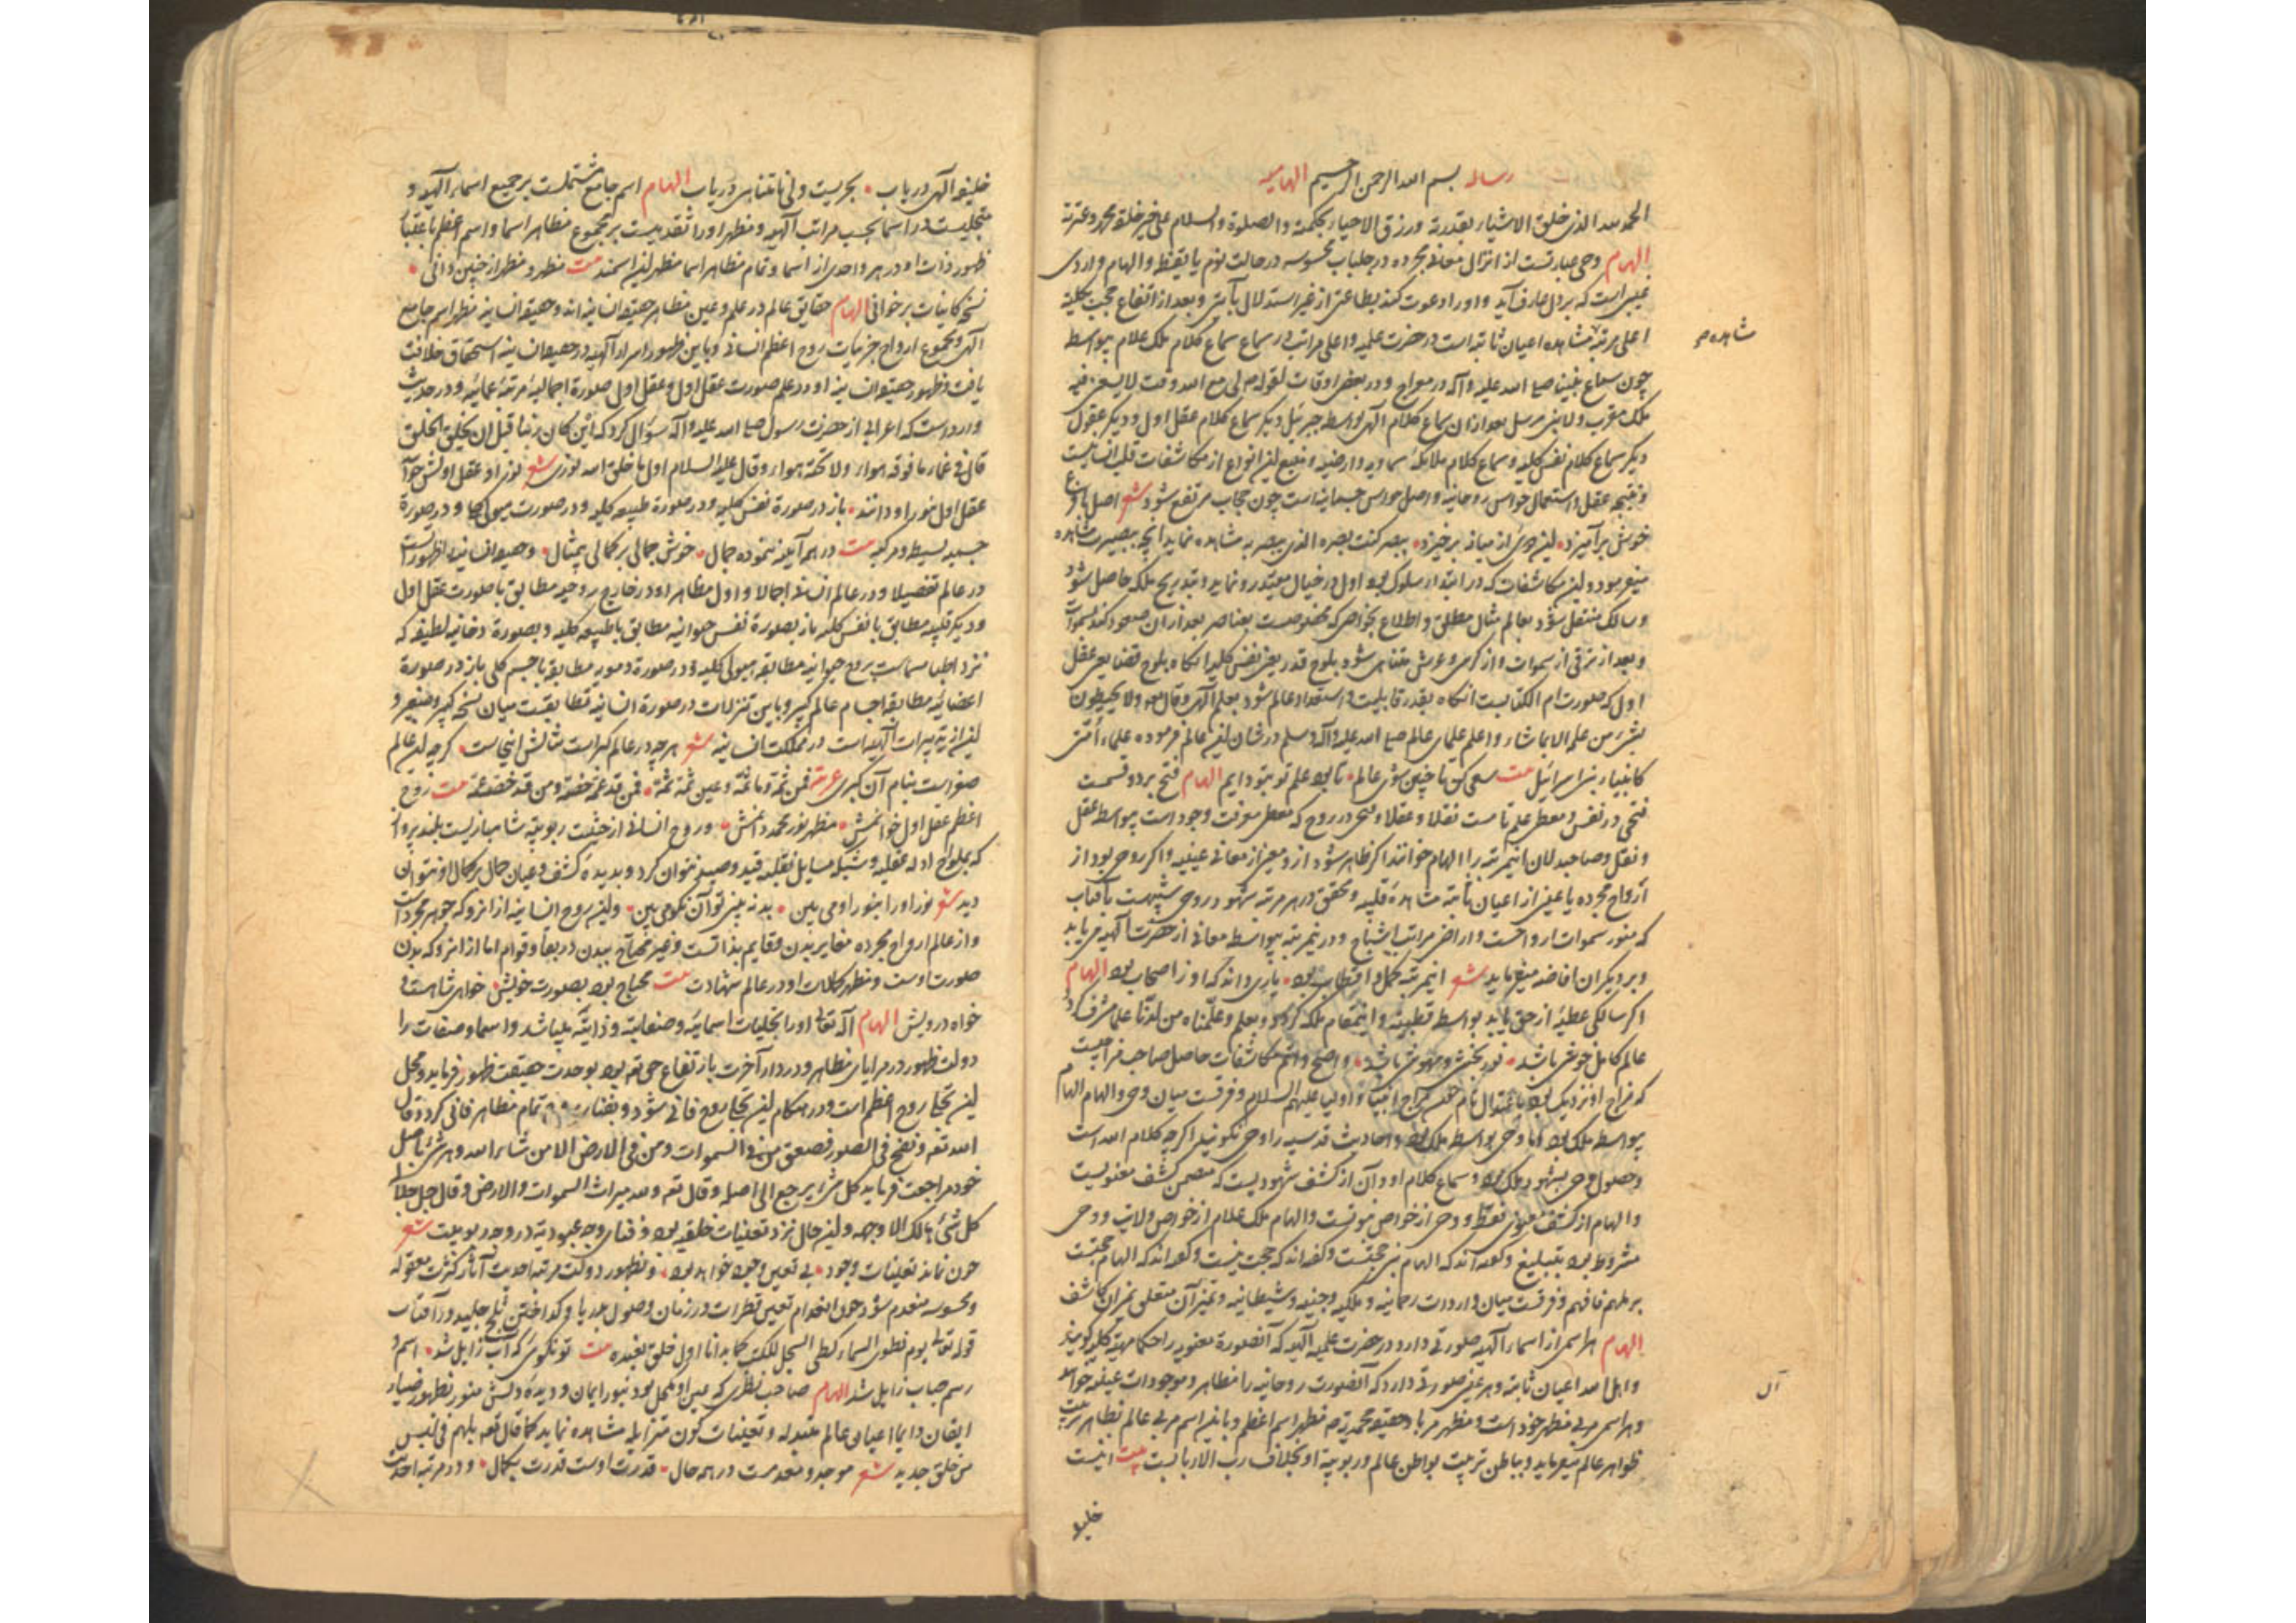 رساله بسم الله الرحمن الرحیم الهامیه
الحمد لله الذی خلق الاشیاء بقدرته ورزق الاحیاء بحکمته والصلوة والسلام علی خیر خلقه محمد وعترته
الهام وحی عبارتست از انزال معانی مجرده در جلباب محسوسه در حالت نوم یا یقظه والهام واردی
غیبی است که بر دل عارف آید و او را دعوت کند بطاعتی از غیر استدلال بآیتی وبعد از ارتفاع حجب بکلیه
اعلی مرتبهٔ مشاهده اعیان ثابته است در حضرت علمیه واعلی مراتب در سماع سماع کلام ملک علام بیواسطه
چون سماع نبینا صلی الله علیه وآله در معراج ودر بعض اوقات لقوله ص لی مع الله وقت لا یسعنی فیه
ملک مقرب ولا نبی مرسل بعد از آن سماع کلام الهی بواسطه جبرئیل دیگر سماع کلام عقل اول ودیگر عقول
دیگر سماع کلام نفس کلیه وسماع کلام ملایکهٔ سماویه وارضیه ومنبع این انواع از مکاشفات قلب انسانیست
ونتیجه عقل واستعمال حواس روحانیه واصل حواس جسمانیه است چون حجاب مرتفع شود شعر اصل با فرع
خویش برآمیزد • این دوئی از میانه برخیزد • ببصر کنت بصره الذی یبصر به مشاهده نماید آنچه ببصیرت مشاهده
مینمود واین مکاشفات که در ابتداء سلوک بود اول در خیال مقید رو نماید وبتدریج ملکه حاصل شود
وسالک منتقل شود بعالم مثال مطلق واطلاع بخواصی که مخصوصست بعناصر بعد از آن صعود کند بسموات
وبعد از ترقی از سموات واز کرسی وعرش منتهی شود بلوح قدر یعنی نفس کلیه آنگاه بلوح قضا یعنی عقل
اول که صورت ام الکتابست آنگاه بقدر قابلیت واستعداد عالم شود بعلم الهی وقال تعه ولا یحیطون
بشیء من علمه الا بما شاء واعلم علمای عالم صلی الله علیه وآله وسلم در شان این عالم فرموده علماء أمتی
کانبیاء بنی اسرائیل بیت سعی کن تا چنین شوی عالم • تا بود علم تو بتو دایم الهام فتح بر دو قسمست
فتحی در نفس ومعطی علم تامست نقلا وعقلا وفتحی در روح که معطی معرفت وجود است بیواسطه عقل
ونقل وصاحبدلان اینمرتبه را الهام خوانند اگر ظاهر شود از و معنی از معانی غیبیه واگر روحی بود از
أرواح مجرده یا عینی از اعیان ثابته مشاهدهٔ قلبیه ومحقق در هر مرتبه بشهود روحی شبیهست بآفتاب
که منور سموات ارواحست واراضی مراتب اشباح ودر نمرتبه بیواسطه معانی از حضرت الهیه می یابد
وبر دیگران افاضه میفرماید شعر اینمرتبه کمل واقطاب بود • یاری داند که او ز اصحاب بود الهام
اگر سالکی عطیهٔ از حق یابد بواسطه قطبیه واینمقام ملکه گردد وبعلم وعلمناه من لدنا علما مشرف گردد
عالم کامل خوشی باشد • نور بخشی ومهوشی باشد • واصح واتم مکاشفات حاصل صاحب مزاجیست
که مزاج او نزدیک بود باعتدال تام همچو مزاج انبیا واولیا علیهم السلام وفرقست میان وحی والهام الهام
بیواسطه ملک بود اما وحی بواسطه ملک بود واحادیث قدسیه را وحی نگویند اگرچه کلام الله است
وحصول وحی بشهود ملک بود وسماع کلام او وآن از کشف شهودیست که متضمن کشف معنویست
والهام از کشف معنوی فقط ووحی از خواص نبوتست والهام ملک علام از خواص ولایت ووحی
مشروط بود بتبلیغ وگفته اند که الهام نیز حجتست وگفته اند که حجت نیست وگفته اند که الهام حجتست
بر ملهم فافهم وفرقست میان واردات رحمانیه وملکیه وجنیه وشیطانیه وتمیز آن متعلق بمیزان کاشف
الهام هر اسمی از اسماء الهیه صورتی دارد در حضرت علمیه الهیه که آنصورة معنویه را حکما مهیة کلیه گویند
واهل الله اعیان ثابته وهر عینی صورتی دارد که آنصورت روحانیه را مظاهر وموجودات عینیه خوانند
وهر اسمی مربی مظهر خود است ومظهر مربا وحقیقه محمدیه ص مظهر اسم اعظم وباین اسم مربی عالم بظاهر تربیت
ظواهر عالم میفرماید وبباطن تربیت بواطن عالم وربوبیة او بخلافت رب الاربابست بیت اینست
خلیفه
مشاهده ص
آل
خلیفهٔ الهی دریاب • بحریست ولی تا بتناهی دریاب الهام اسم جامع مشتملست بر جمیع اسماء الهیه و
متجلیست در اسما بحسب مراتب الهیه ومظهر او را تقدمیست بر مجموع مظاهر اسما واسم اعظم باعتبار
ظهور ذات او در هر واحدی از اسما وتمام مظاهر اسما مظهر این اسمند بیت مظهر ومظهر ار چنین دانی •
نسخهٔ کاینات برخوانی الهام حقایق عالم در علم وعین مظاهر حقیقة انسانیه اند وحقیقة انسانیه مظهر اسم جامع
الهی ومجموع ارواح جزئیات روح اعظم انسانی وباین ظهور اسرار الهیه در حقیقة انسانیه استحقاق خلافت
یافت وظهور حقیقة انسانیه او در علم صورت عقل اول وعقل اول صورة اجمالیهٔ مرتبهٔ عمائیه ودر حدیث
وارد است که اعرابی از حضرت رسول صلی الله علیه وآله سؤال کرد که این کان ربنا قبل ان یخلق الخلق
قال فی عماء ما فوقه هواء ولا تحته هواء وقال علیه السلام اول ما خلق الله نوری شعر نور او عقل اولش خوانند
عقل اول نور او دانند • باز در صورة نفس کلیه ودر صورة طبیعه کلیه ودر صورت هیولاها ودر صورة
جسمیه بسیطه ومرکبه بیت در هر آینه بنموده جمال • خوش جمالی بر کمالی بمثال • وحقیقة انسانیه را ظهوراتست
در عالم تفصیلا ودر عالم انسانی اجمالا واول مظاهر او در خارج روحیه مطابق با صورت عقل اول
ودیگر قلبیه مطابق با نفس کلیه باز بصورة نفس حیوانیه مطابق با طبیعه کلیه وبصورة دخانیه لطیفه که
نزد اطبا مسماست بروح حیوانیه مطابقه هیولی کلیه ودر صورة دمویه مطابقه با جسم کلی باز در صورة
اعضائیه مطابقه اجسام عالم کبیر وباین تنزلات در صورة انسانیه مطابقتست میان نسخه کبیر وصغیر و
این از تدبیرات الهیه است در مملکت انسانیه شعر هرچه در عالم کبراست مثالش اینجاست • گرچه این عالم
صغراست بنام آن کبری عربیة فمن ثمة وما ثمة وعین ثمة ثمة • فمن قد عمه خصه ومن قد خصه عمه بیت روح
اعظم عقل اول خوانمش • مظهر نور محمد دانمش • وروح انسانی از حیثیت ربوبیة شاهبازیست بلند پرواز
که بملواح ادله عقلیه وشبکه مسایل نقلیه قید وصید نتوان کرد وبدیدهٔ کشف وعیان جمال بر کمال او نتوان
دید شعر نور او را بنور او می بین • بد نه بینی تو آن نکو می بین • واین روح انسانیه از آنرو که جوهر مجرد است
واز عالم ارواح مجرده مغایر بدن وقایم بذاتست وغیر محتاج ببدن در بقا وقوام اما از آنرو که بدن
صورت اوست ومظهر کمالات او در عالم شهادت بیت محتاج بود بصورت خویش • خواهی شاهست و
خواه درویش الهام اله تعالی او را تجلیات اسمائیه وصفاتیه وذاتیه میباشد واسما وصفات را
دولت ظهور در مرایای مظاهر ودر دار آخرت بارتفاع حق تعه بود بوحدت حقیقت ظهور فرماید ومحل
این تجلی روح اعظم است ودر هنگام این تجلی روح فانی شود وبفناء او تمام مظاهر فانی گردد قال
الله تعه ونفخ فی الصور فصعق من فی السموات ومن فی الارض الا من شاء الله وهر شیء باصل
خود مراجعت فرماید کل شیء یرجع الی اصله وقال تعه ولله میراث السموات والارض وقال جل جلاله
کل شیء هالک الا وجهه واین حال نزد تعینات خلقیه بود وفنای وجه عبودیة در وجه ربوبیت شعر
چون نماند تعینات وجود • بی تعین وجود خواهد بود • وبظهور دولت مرتبه احدیت آثار کثرت معقوله
ومحسوسه منعدم شود همچو انعدام تعین قطرات در زمان وصول بدریا وگداختن ثلج جلیدیه در آفتاب
قوله تعالی یوم نطوی السماء کطی السجل للکتب کما بدأنا اول خلق نعیده بیت تو نگوئی که آب زایل شد • اسم و
رسم حباب زایل شد الهام صاحب نظری که عین او مکحل بود بنور ایمان ودیدهٔ دلش منور بظهور ضیاء
ایقان دایما اعیان عالم متبدله وتعینات کون متزایله مشاهده نماید کما قال تعه بل هم فی لبس
من خلق جدید شعر موجد ومعدمست در همه حال • قدرت اوست قدرت بکمال • ودر مرتبه احدیت